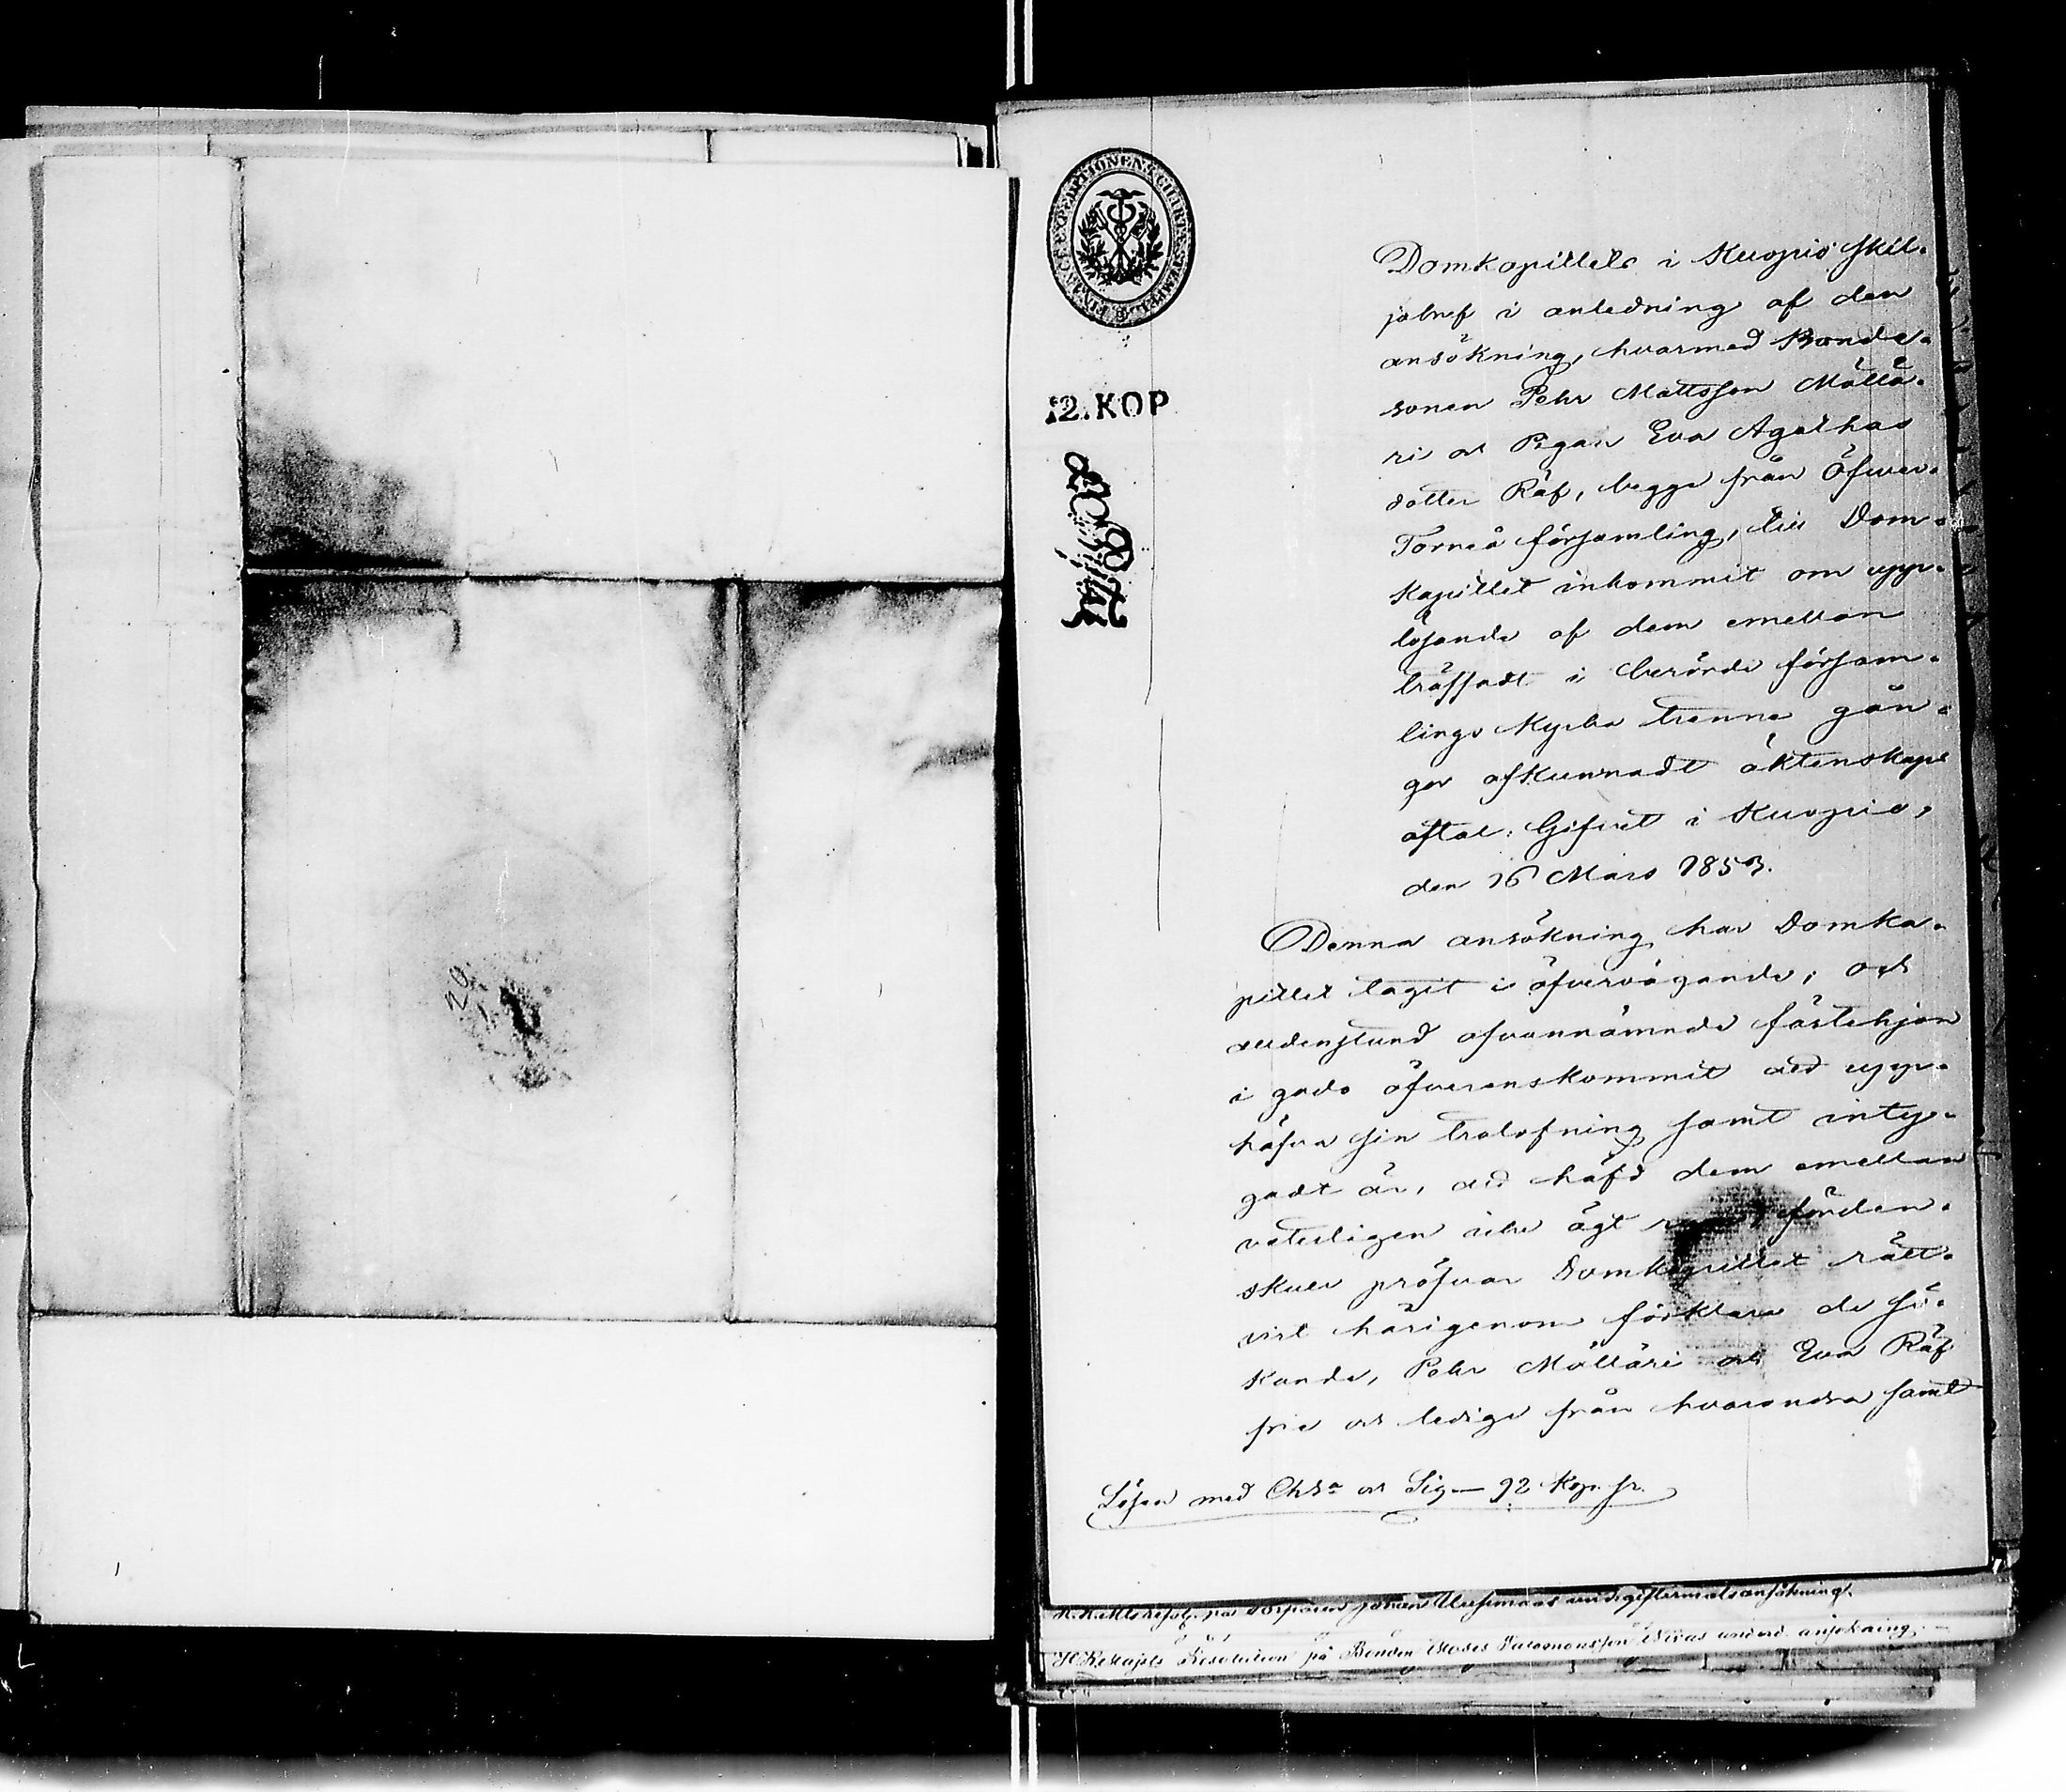 FINANCE EXPEDITIONENS CHARTÆ STÆMPEL
12. KOP
Domkapitlets i Kuopio skil-
jobref i anledning af den
ansökning, hvarmed Bonde-
sonen Pehr Mattsson Mällä-
ri och Pigan Eva Agathas
dotter Räf, begge från Öfver-
Torneå församling, till Dom-
kapitlet inkommit om upp-
lösande af dem emellan
träffadt i berörde försam-
lings Kyrka trenne gån-
gor afkunnadt äktenskaps
aftal: Gifvet i Kuopio,
den 16 Mars 1853.
Denna ansökning har Domka-
pitlet tagit i öfvervägande; och
alldenstund ofvannämnde fästehjon
i godo öfverenskommit att upp-
häfva sin trolofning samt inty-
gadt är, att häfd dem emellan
veterligen icke ägt förden-
skull pröfvar Domkapitlet rätt-
vist härigenom förklara de sö-
kande, Pehr Mälläri och Eva Räf
fria och lediga från hvarandra samt
Lösen med Chta och Sig— 92 Kop. sr.
Johan
Resolution på Bonden Moses Salomonsson ansökning